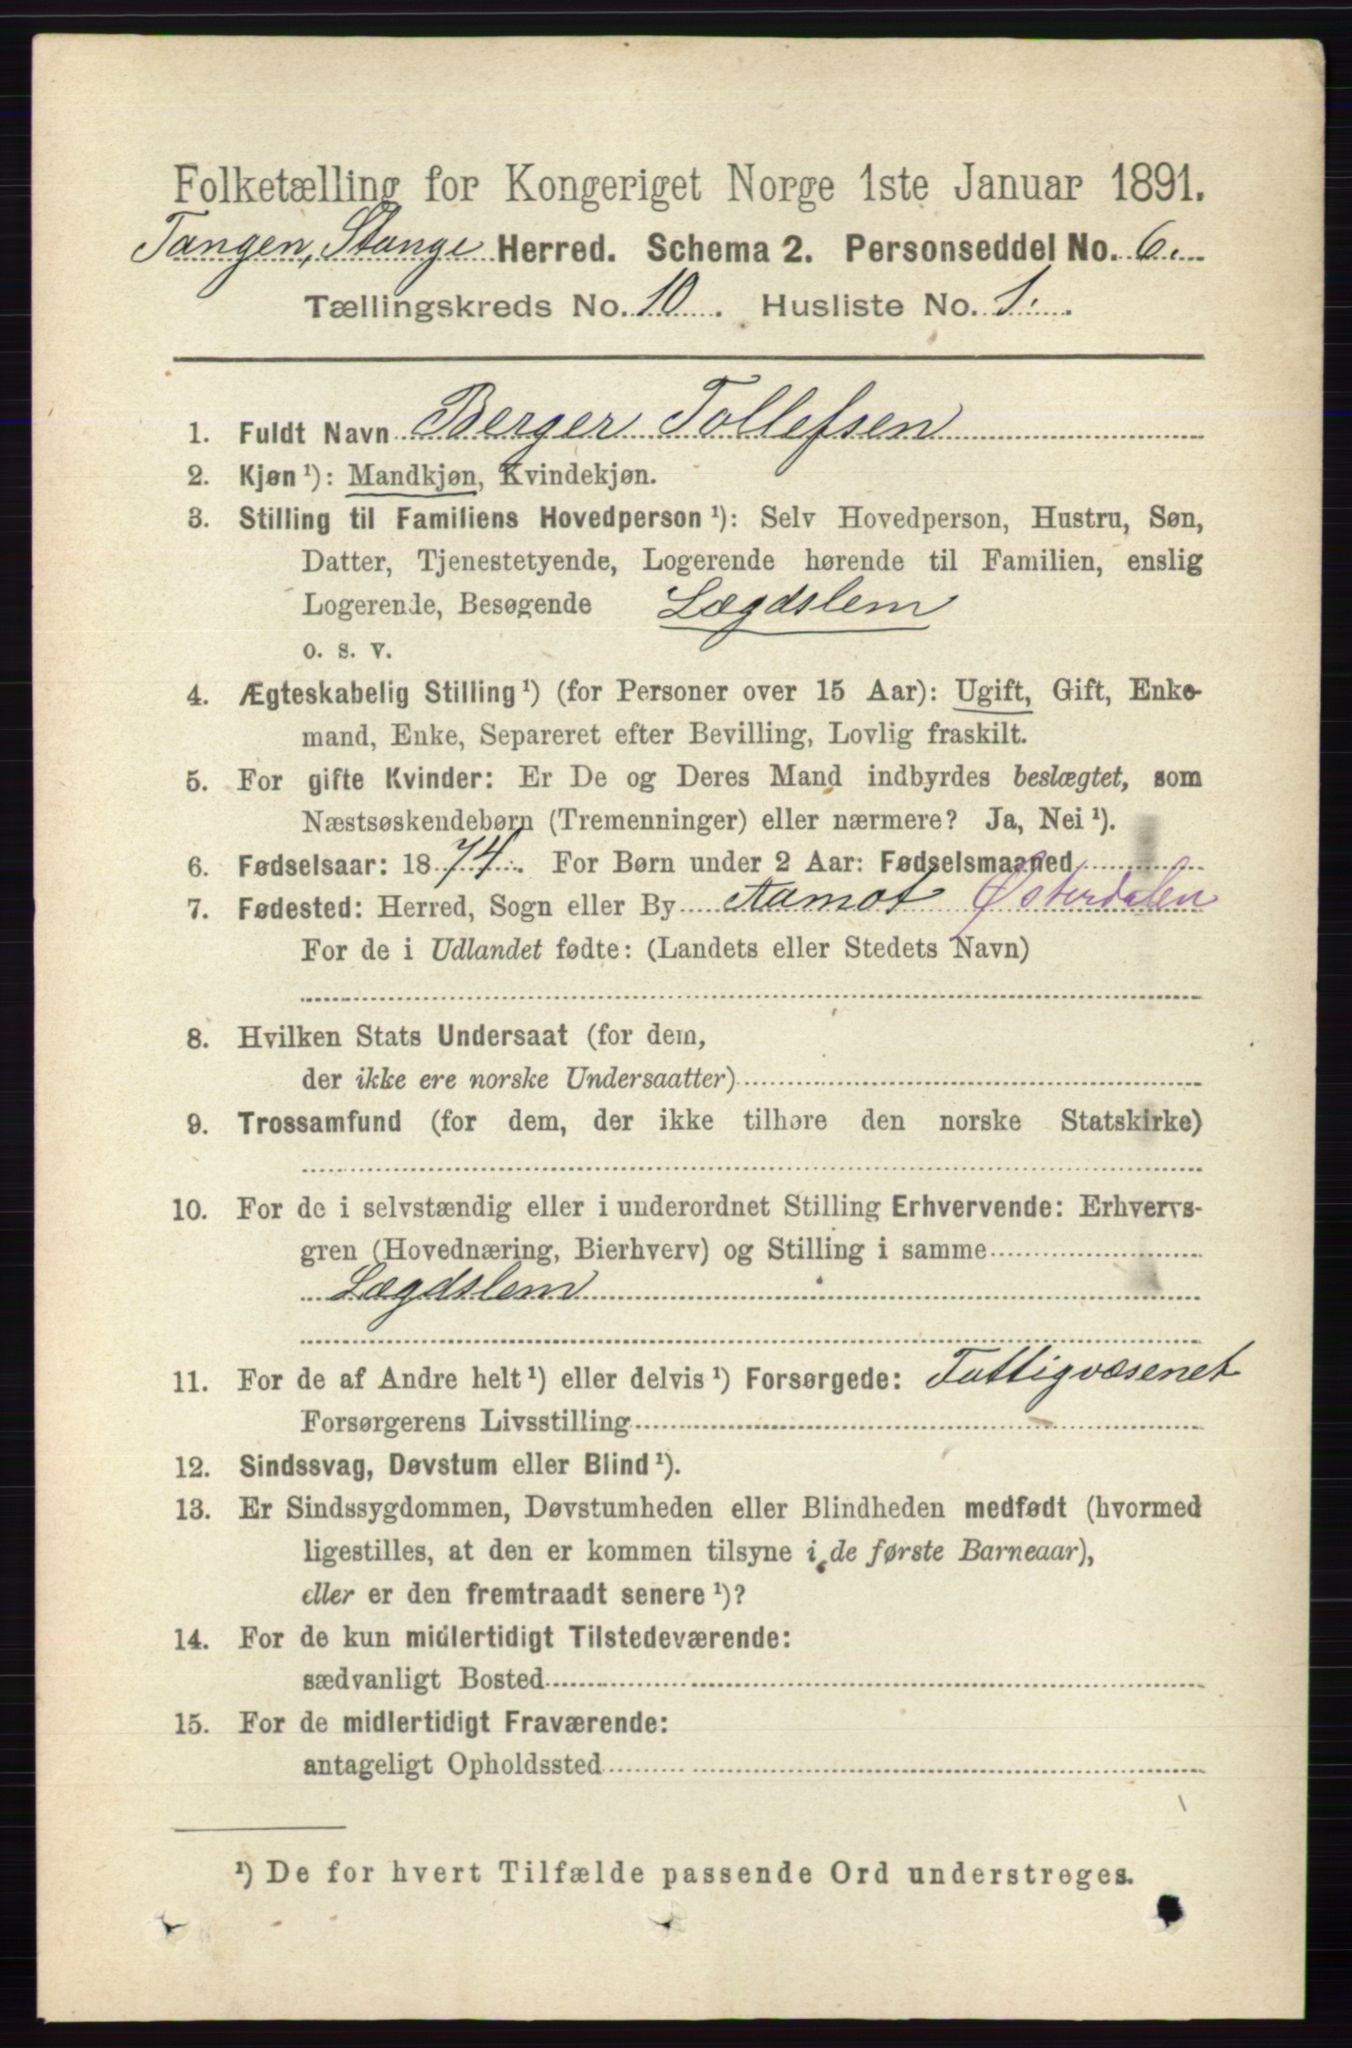 Folketælling for Kongeriget Norge 1ste Januar 1891.
Tangen, Stange Herred. Schema 2. Personseddel No. 6.
Tællingskreds No. 10. Husliste No. 1.
1. Fuldt Navn Berger Tollefsen
2. Kjøn ¹): Mandkjøn, Kvindekjøn.
3. Stilling til Familiens Hovedperson ¹): Selv Hovedperson, Hustru, Søn,
Datter, Tjenestetyende, Logerende hørende til Familien, enslig
Logerende, Besøgende Lægdslem
o. s. v.
4. Ægteskabelig Stilling ¹) (for Personer over 15 Aar): Ugift, Gift, Enke-
mand, Enke, Separeret efter Bevilling, Lovlig fraskilt.
5. For gifte Kvinder: Er De og Deres Mand indbyrdes beslægtet, som
Næstsøskendebørn (Tremenninger) eller nærmere? Ja, Nei ¹).
6. Fødselsaar: 1874. For Børn under 2 Aar: Fødselsmaaned
7. Fødested: Herred, Sogn eller By Aamot Østerdalen
For de i Udlandet fødte: (Landets eller Stedets Navn)
8. Hvilken Stats Undersaat (for dem,
der ikke ere norske Undersaatter)
9. Trossamfund (for dem, der ikke tilhøre den norske Statskirke)
10. For de i selvstændig eller i underordnet Stilling Erhvervende: Erhvervs-
gren (Hovednæring, Bierhverv) og Stilling i samme
Lægdslem
11. For de af Andre helt ¹) eller delvis ¹) Forsørgede: Fattigvæsenet
Forsørgerens Livsstilling
12. Sindssvag, Døvstum eller Blind ¹).
13. Er Sindssygdommen, Døvstumheden eller Blindheden medfødt (hvormed
ligestilles, at den er kommen tilsyne i de første Barneaar),
eller er den fremtraadt senere ¹)?
14. For de kun midlertidigt Tilstedeværende:
sædvanligt Bosted
15. For de midlertidigt Fraværende:
antageligt Opholdssted
¹) De for hvert Tilfælde passende Ord understreges.